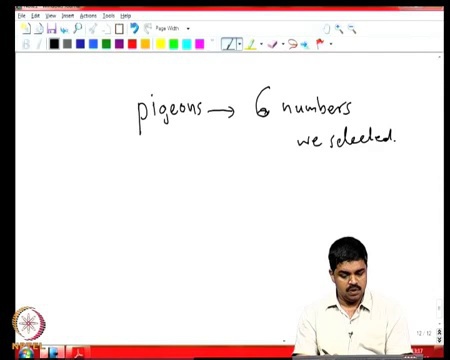 File Edit View Insert Actions Tools Help
Page Width
pigeons → 6 numbers
we selected.
12 / 12
NPTEL